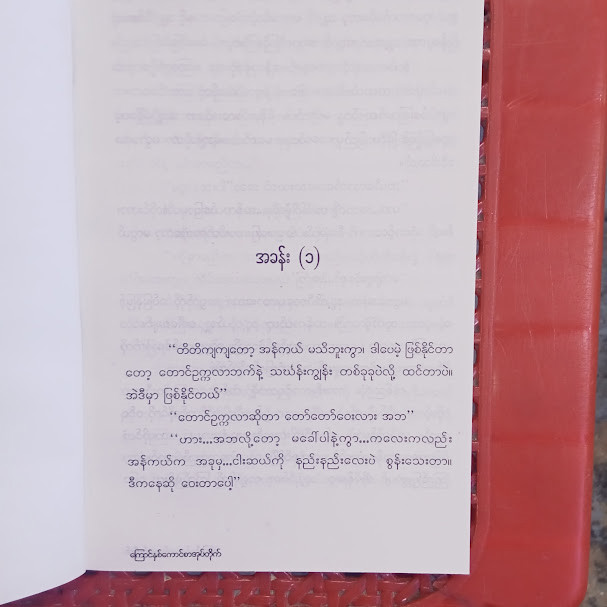 အခန်း (၁)
“တိတိကျကျတော့ အန်ကယ် မသိဘူးကွာ၊ ဒါပေမဲ့ ဖြစ်နိုင်တာ
တော့ တောင်ဥက္ကလာဘက်နဲ့ သင်္ဃန်းကျွန်း တစ်ခုခုပဲလို့ ထင်တာပဲ။
အဲဒီမှာ ဖြစ်နိုင်တယ်”
“တောင်ဥက္ကလာဆိုတာ တော်တော်ဝေးလား အဘ”
“ဟား...အဘလို့တော့ မခေါ်ပါနဲ့ကွာ...ကလေးကလည်း
အန်ကယ်က အခုမှ...ငါးဆယ်ကို နည်းနည်းလေးပဲ စွန်းသေးတာ။
ဒီကနေဆို ဝေးတာပေါ့”
ကြောင်နှစ်ကောင်စာအုပ်တိုက်